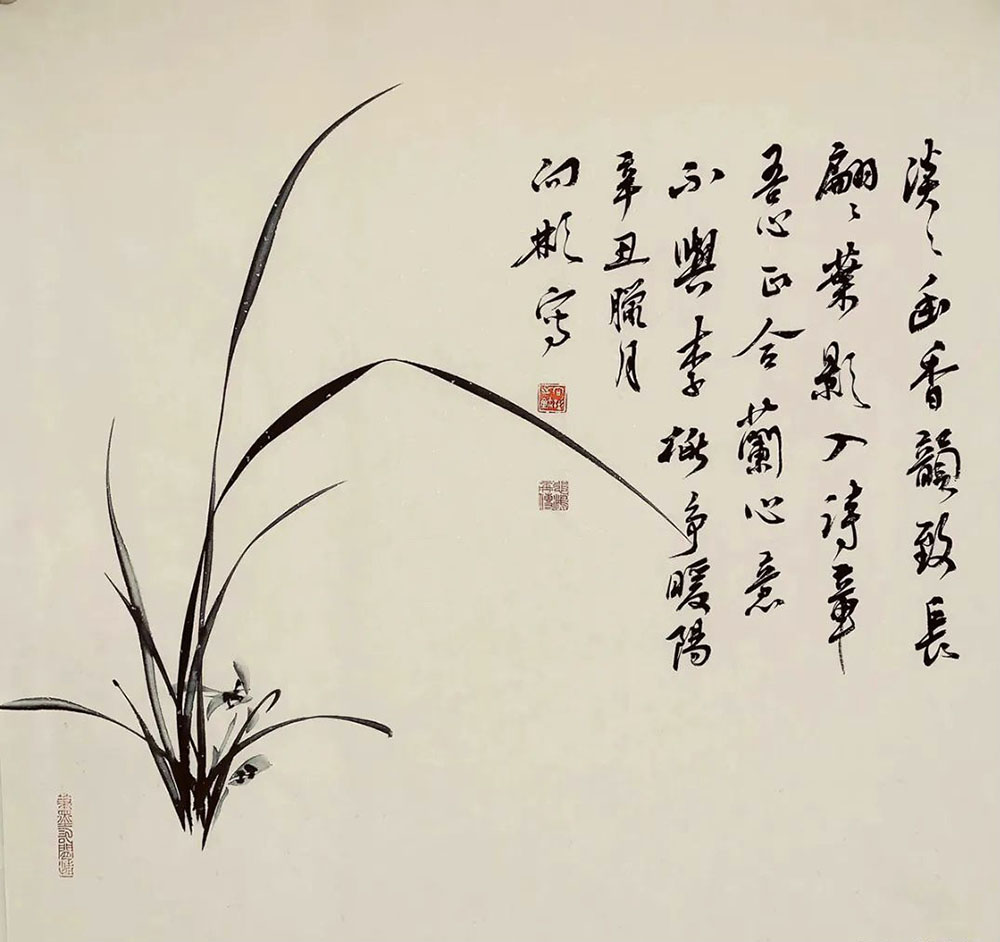 淡〻幽香韻致長
翩〻葉影入詩章
吾心正合蘭心意
不與李桃争暖陽
辛丑臘月
彬写